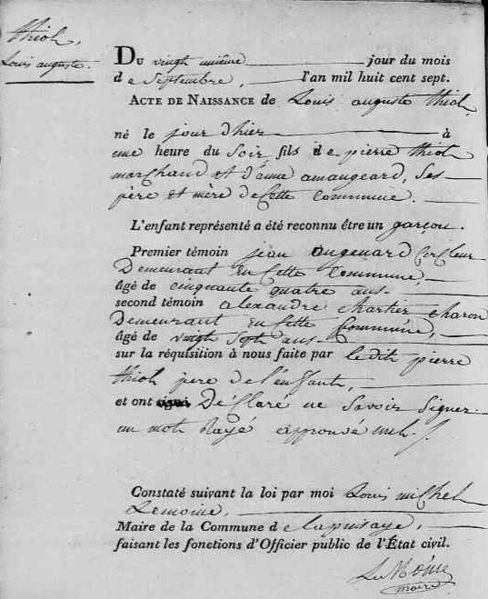 thiol,
Louis auguste.
Du vingt unième jour du mois
de Septembre, l'an mil huit cent sept.
Acte de Naissance de Louis auguste thiol,
né le jour d'hier à
une heure du Soir, fils de pierre thiol
marchand et d'anne amangeard, Ses
père et mère de Cette Commune.
L'enfant représenté a été reconnu être un garçon.
Premier témoin jean augenard Cercleur
Demeurant En Cette Commune,
âgé de Cinquante quatre ans
second témoin alexandre chartier Charon
Demeurant En Cette Commune,
âgé de vingt Sept ans
sur la réquisition à nous faite par le dit pierre
thiol père de l'enfant,
et ont Déclaré ne Savoir Signer
un mot Rayé approuvé nul.
Constaté suivant la loi par moi Louis michel
Lemoine,
Maire de la Commune de lapuisaye,
faisant les fonctions d'Officier public de l'État civil.
LeMoine
maire